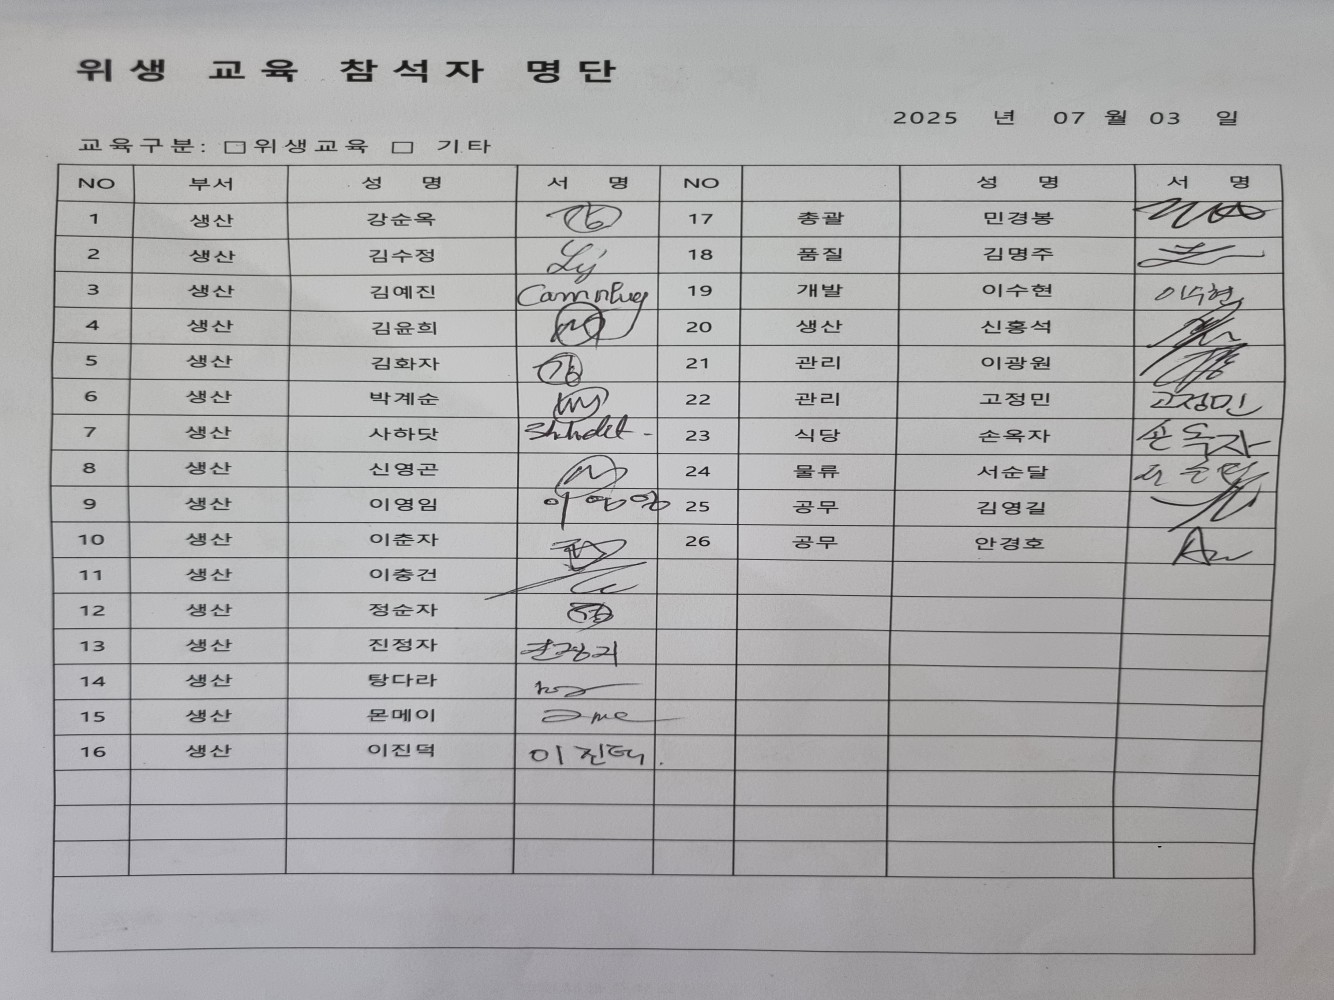 위생 교육 참석자 명단
2025 년 07 월 03 일
교육구분: □위생교육 □ 기타
NO 부서 성 명 서 명 NO 성 명 서 명
1 생산 강순옥 17 총괄 민경봉
2 생산 김수정 18 품질 김명주
3 생산 김예진 19 개발 이수현 이수현
4 생산 김윤희 20 생산 신홍석
5 생산 김화자 21 관리 이광원
6 생산 박계순 22 관리 고정민 고정민
7 생산 사하닷 23 식당 손옥자 손옥자
8 생산 신영곤 24 물류 서순달
9 생산 이영임 이영임 25 공무 김영길
10 생산 이춘자 26 공무 안경호
11 생산 이충건
12 생산 정순자
13 생산 진정자
14 생산 탕다라
15 생산 몬메이
16 생산 이진덕 이진덕.